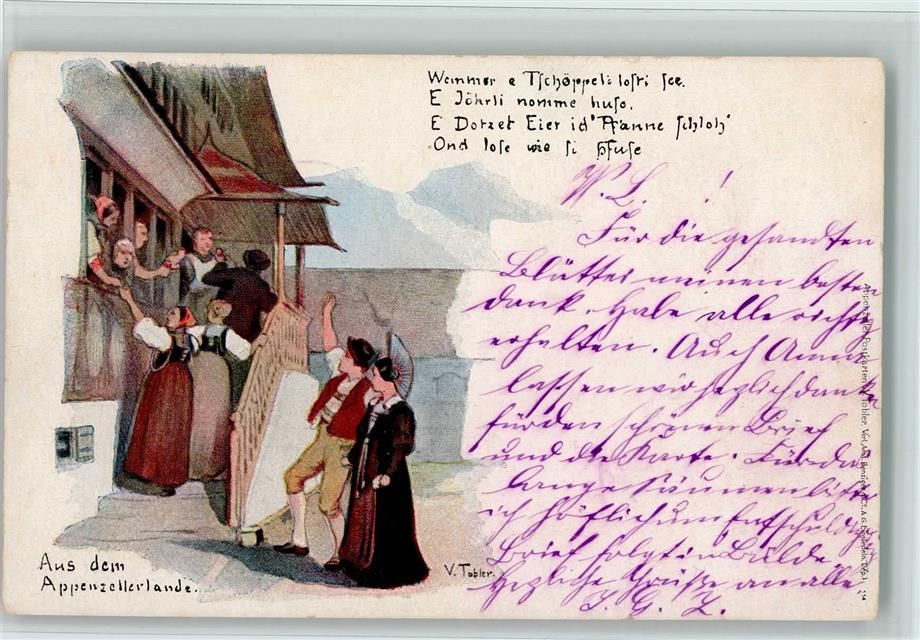 Wemmer e Tschöppeli losti see.
E Jöhrli nomme huso,
E Dotzet Eier id' Pfanne schloh'
Ond lose wie si pfuse
W. L. !
Für die gesandten
Blätter meinen besten
dank. Habe alle richt
erhalten. Auch Anna
lassen wir herzlich danken
für den schönen Brief
und die Karte. Für das
lange Säumen bitte
ich höflich um Entschuldig
Brief folgt in Bälde.
Herzliche Grüße an alle
J. G. Z.
Aus dem
Appenzellerlande.
V. Tobler.
Appenzeller Postkarten v. Tobler. Verl. Benziger & Co. A.G. Einsiedeln